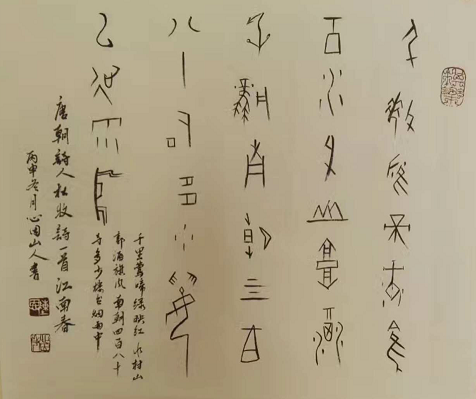 千里鶯啼綠映
紅水村山郭酒
旗風南朝四百
八十寺多少樓
台烟雨中
千里鶯啼綠映紅水村山
郭酒旗風南朝四百八十
寺多少樓台烟雨中
唐朝詩人杜牧詩一首江南春
丙申冬月心田山人書